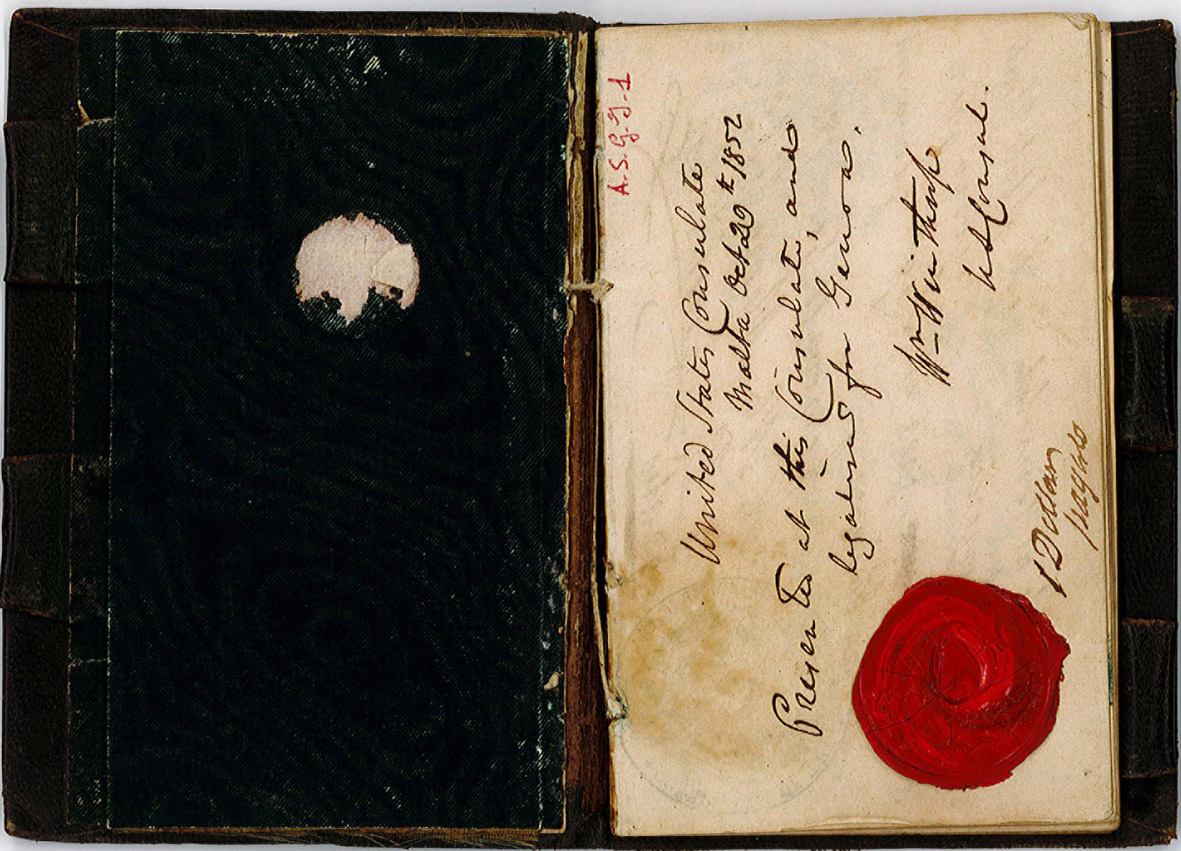 A.S.G.G-1
United States Consulate
Malta Oct 29th 1852
Presented at this Consulate, and
legalised for Genoa.
Wm Winthrop
US Consul.
1 Dollar